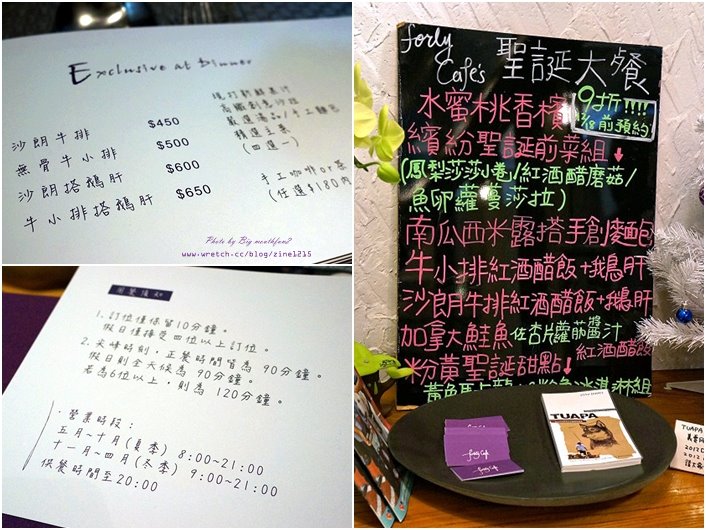 Exclusive at Dinner
沙朗牛排 $450
無骨牛小排 $500
沙朗搭鵝肝 $600
牛小排搭鵝肝 $650
現打新鮮果汁
嚴選湯品/手工麵包
精選主菜
(四選一)
手工咖啡or茶
(任選$180內
Photo by Big mouthfun?
www.wretch.cc/blog/zine1215
用餐須知
1. 訂位僅保留10分鐘。
假日僅接受四位以上訂位。
2. 尖峰時刻,正餐時間皆為 90分鐘。
假日則全天候為 90分鐘。
若為6位以上,則為 120分鐘。
·營業時段:
五月~十月(夏季) 8:00~21:00
十一月~四月(冬季) 9:00~21:00
供餐時間至20:00
forly
Cafe's 聖誕大餐
水蜜桃香檳
9折!!!!
12/8前預約
繽紛聖誕前菜組↓
(鳳梨莎莎小卷/紅酒醋磨菇/
魚卵蘿蔓莎拉)
南瓜西米露搭手創麵包
牛小排紅酒醋飯+鵝肝
沙朗牛排紅酒醋飯+鵝肝
加拿大鮭魚佐杏片蘿筍醬汁
紅酒醋飯
粉黃聖誕甜點↓
TUAPA
forly Cafe
TUAPA